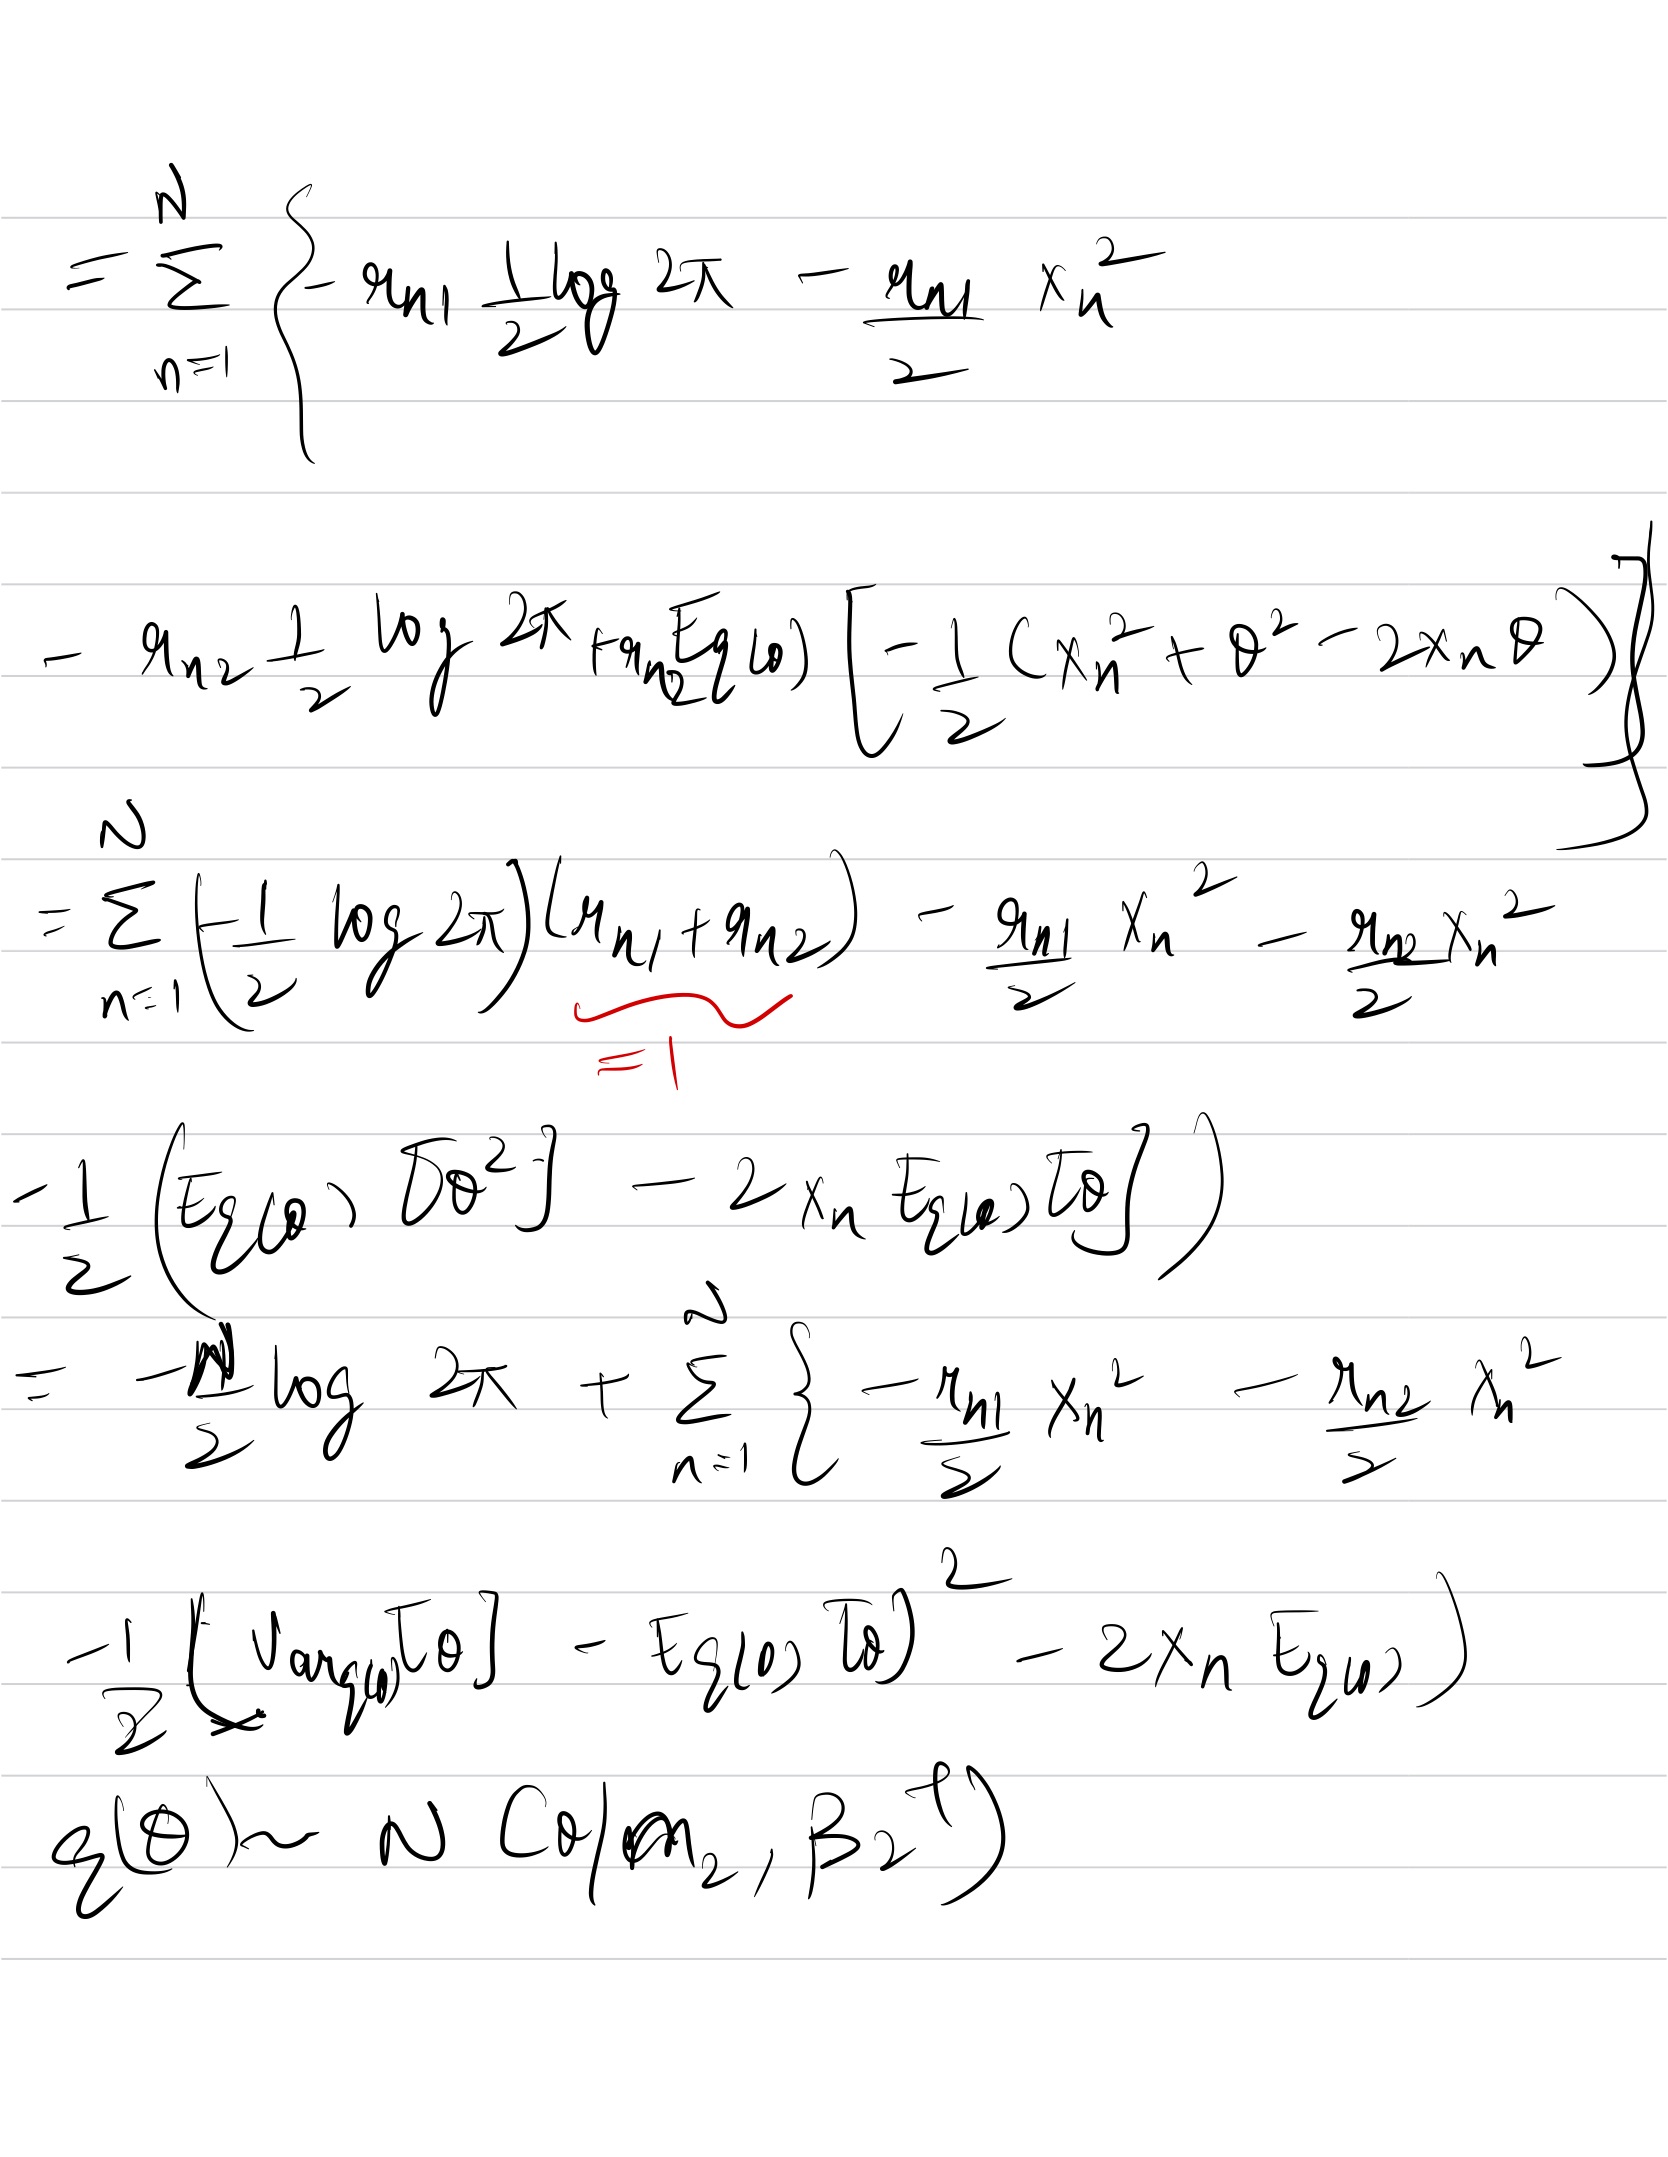 = \sum_{n=1}^{N} \{ - r_{n1} \frac{1}{2} log 2π - \frac{r_{n1}}{2} x_n^2
- r_{n2} \frac{1}{2} log 2π + r_{n2} E_{q(θ)} [ -\frac{1}{2} (x_n^2 + θ^2 - 2x_n θ) ] \}
= \sum_{n=1}^{N} ( -\frac{1}{2} log 2π ) ( r_{n1} + r_{n2} ) - \frac{r_{n1}}{2} x_n^2 - \frac{r_{n2}}{2} x_n^2
= 1
- \frac{1}{2} ( E_{q(θ)} [θ^2] - 2 x_n E_{q(θ)} [θ] )
= - \frac{N}{2} log 2π + \sum_{n=1}^{N} \{ - \frac{r_{n1}}{2} x_n^2 - \frac{r_{n2}}{2} x_n^2
- \frac{1}{2} ( Var_{q(θ)} [θ] - E_{q(θ)} [θ]^2 - 2 x_n E_{q(θ)} )
q(θ) ~ N (θ | m_2, β_2^{-1})